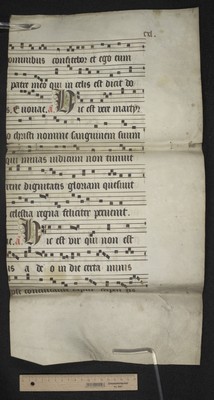 cxl.
omnibus confitebor et ego eum
pater meo qui in celis est dicit do
s. Euouae. a. Hic est vere martyr
o christi nomine sanguinem suum
qui minas iudicum non timuit
rene dignitatis gloriam quesiuit
celestia regna feliciter peruenit.
ae. a. Hic est vir qui non est
us a deo in die certa minis